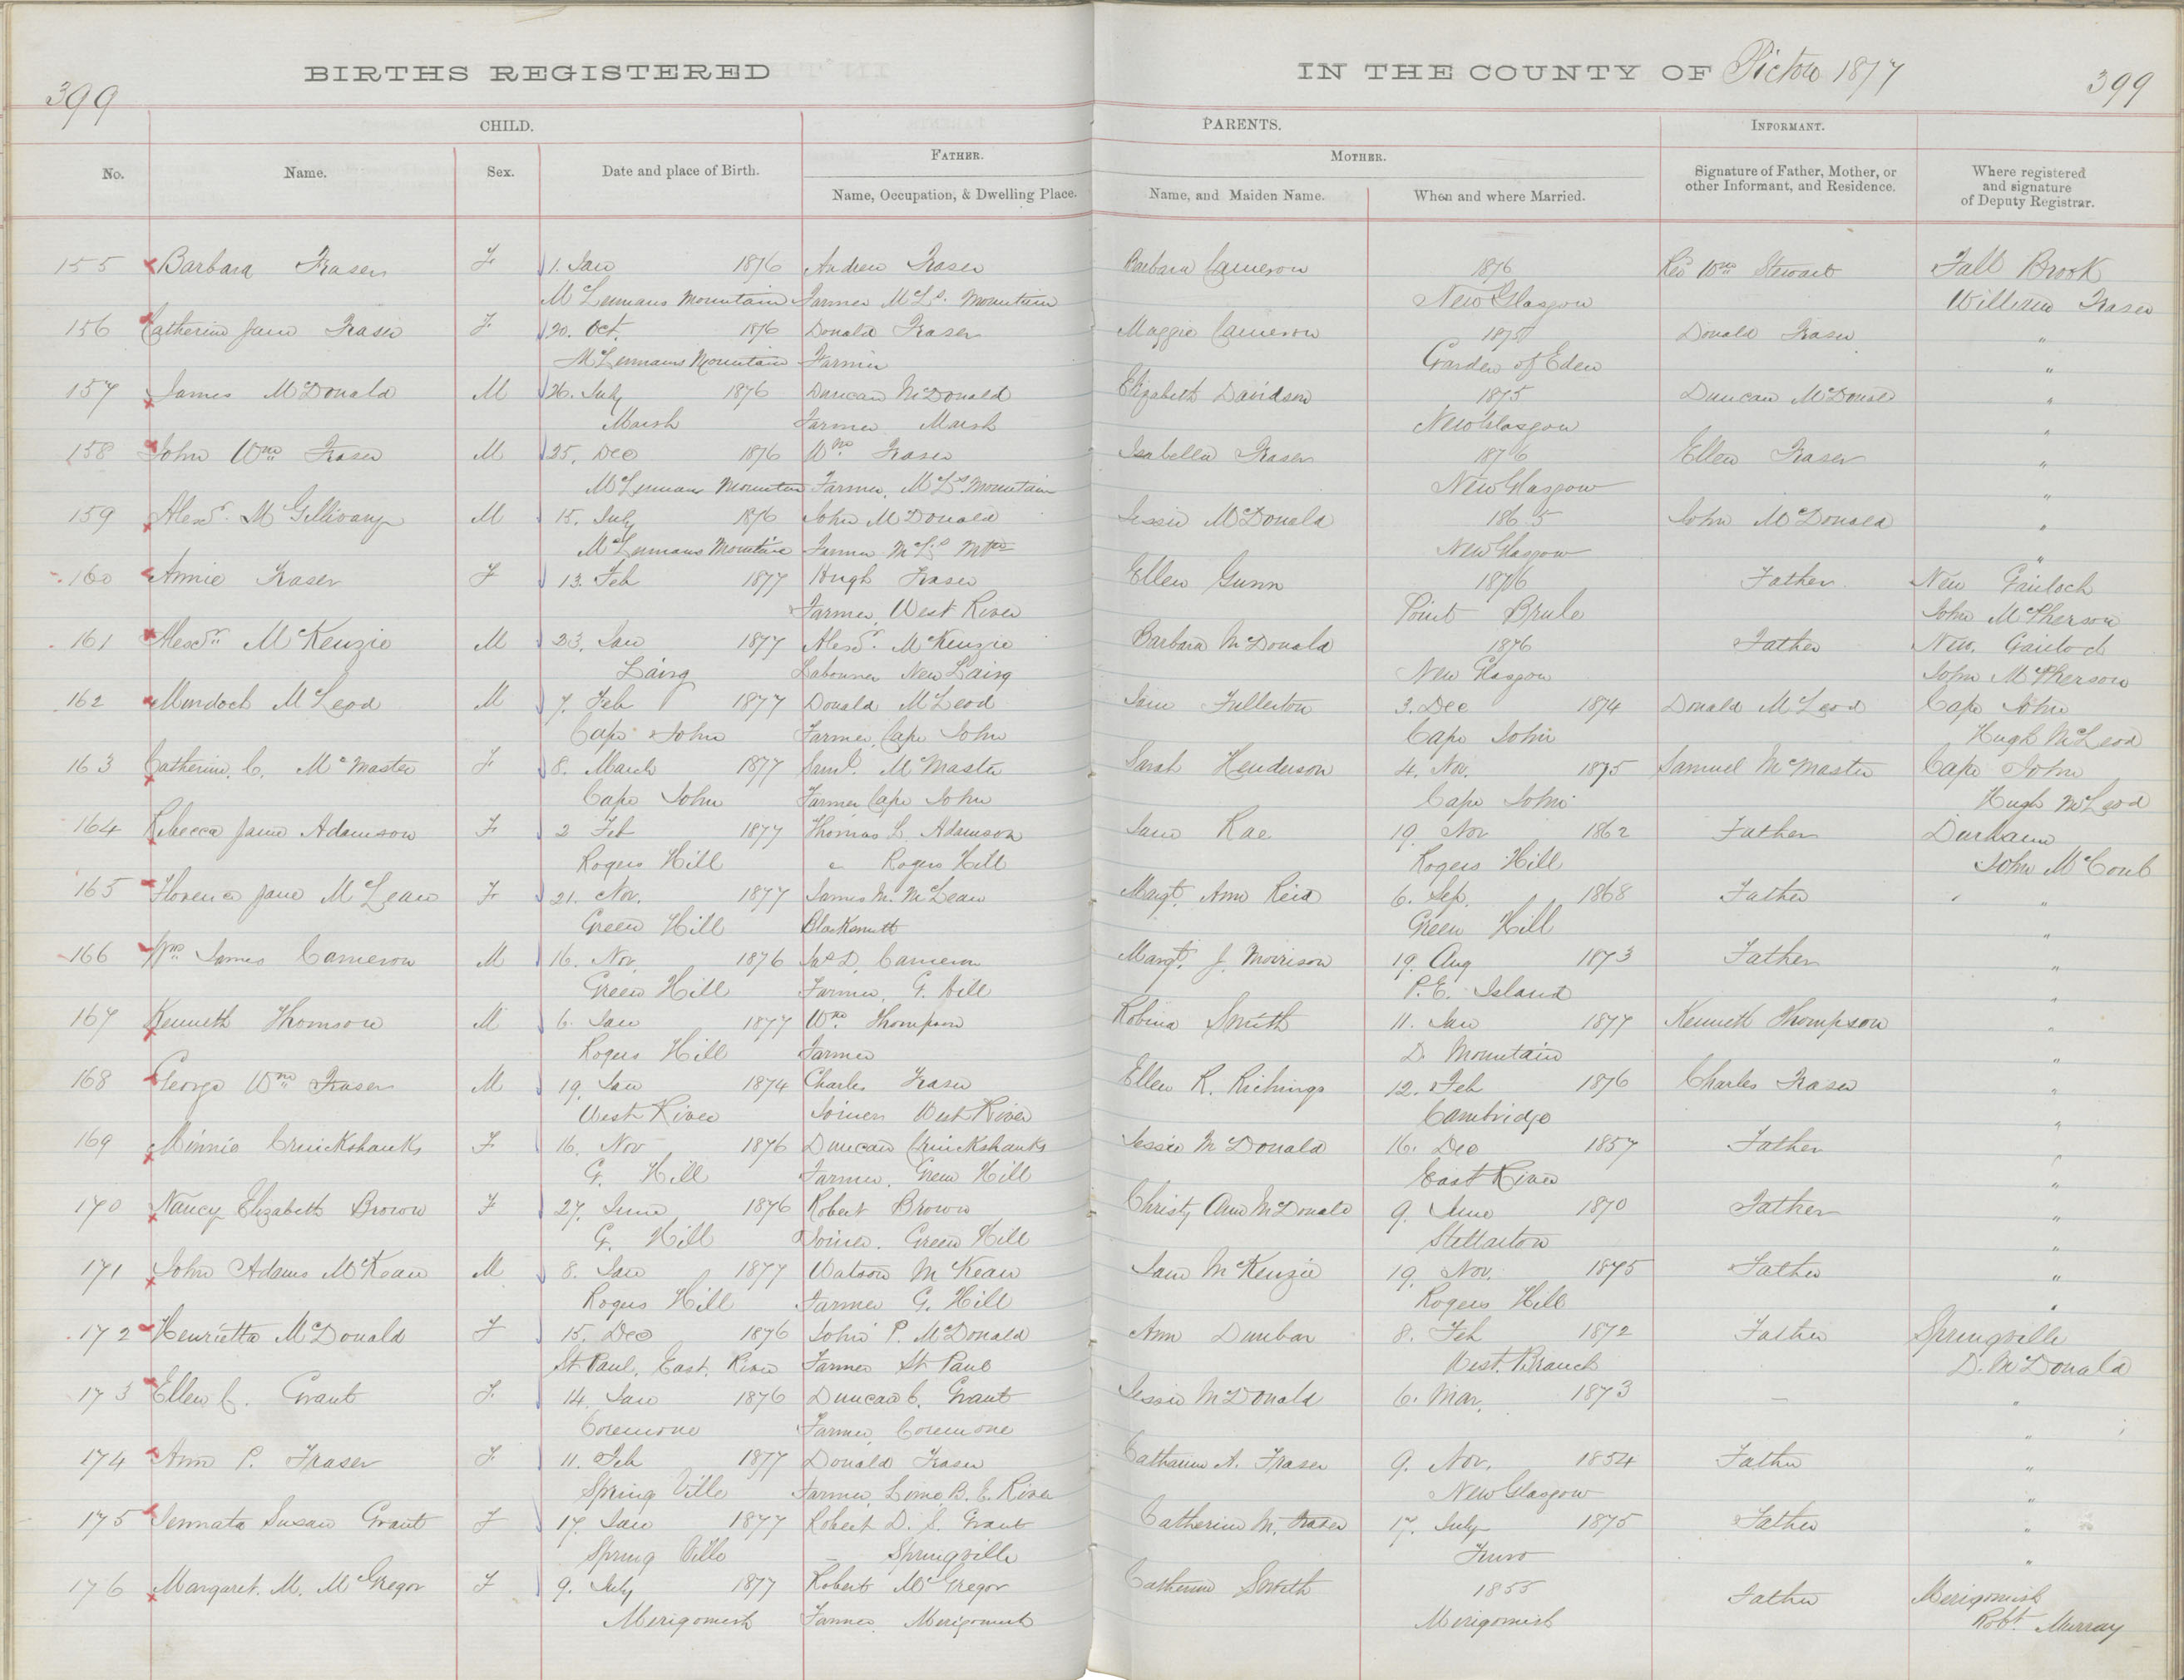 BIRTHS REGISTERED IN THE COUNTY OF Pictou 1877
399 399
CHILD. PARENTS. INFORMANT.
No. Name. Sex. Date and place of Birth. FATHER. MOTHER.
Name, Occupation, & Dwelling Place. Name, and Maiden Name. When and where Married.
Signature of Father, Mother, or other Informant, and Residence.
Where registered and signature of Deputy Registrar.
155 Barbara Fraser F 1. Jan 1876 Andrew Fraser Barbara Cameron 1876 Rev Wm Stewart Fall Brook
McLennans Mountain Farmer McLs. Mountain New Glasgow William Fraser
156 Catherine Jane Fraser F 20. Oct. 1876 Donald Fraser Maggie Cameron 1875 Donald Fraser "
McLennans Mountain Farmer Garden of Eden "
157 James McDonald M 26. July 1876 Duncan McDonald Elizabeth Davidson 1875 Duncan McDonald "
Marsh Farmer Marsh New Glasgow "
158 John Wm Fraser M 25. Dec 1876 Wm Fraser Isabella Fraser 1876 Ellen Fraser "
McLennans Mountain Farmer, McLs. Mountain New Glasgow "
159 Alexr. McGillivary M 15. July 1876 John McDonald Jessie McDonald 1865 John McDonald "
McLennans Mountain Farmer McLs Mtn New Glasgow "
160 Annie Fraser F 13. Feb 1877 Hugh Fraser Ellen Gunn 1876 Father New Gairloch
Farmer, West River Point Brule John McPherson
161 Alexdr McKenzie M 23. Jan 1877 Alexr. McKenzie Barbara McDonald 1876 Father New. Gairloch
Lairg Labourer New Lairg New Glasgow John McPherson
162 Murdoch McLeod M 7. Feb 1877 Donald McLeod Jane Fullerton 3. Dec 1874 Donald McLeod Cape John
Cape John Farmer, Cape John Cape John Hugh McLeod
163 Catherine. C. McMaster F 8. March 1877 Saml. McMaster Sarah Henderson 4. Nov. 1875 Samuel McMaster Cape John
Cape John Farmer Cape John Cape John Hugh McLeod
164 Rebecca Jane Adamson F 2 Feb 1877 Thomas L Adamson Jane Rae 19. Nov 1862 Father Durham
Rogers Hill " Rogers Hill Rogers Hill John McCoub
165 Florence Jane McLean F 21. Nov. 1877 James M. McLean Margt. Ann Reid 6. Sep. 1868 Father "
Green Hill Blacksmith Green Hill "
166 Wm James Cameron M 16. Nov 1876 Jas D. Cameron Margt. J. Morrison 19. Aug 1873 Father "
Green Hill Farmer, G. Hill P.E. Island "
167 Kenneth Thomson M 6. Jan 1877 Wm. Thompson Robina Smith 11. Jan 1877 Kenneth Thompson "
Rogers Hill Farmer D. Mountain "
168 George Wm Fraser M 19. Jan 1874 Charles Fraser Ellen R. Richings 12. Feb 1876 Charles Fraser "
West River Joiner West River Cambridge "
169 Minnie Cruickshanks F 16. Nov 1876 Duncan Cruickshanks Jessie McDonald 16. Dec 1857 Father "
G. Hill Farmer. Green Hill East River "
170 Nancy Elizabeth Brown F 27. June 1876 Robert Brown Christy Ann McDonald 9. June 1870 Father "
G. Hill Joiner. Green Hill Stellarton "
171 John Adams McKean M 8. Jan 1877 Watson McKean Jane McKenzie 19. Nov. 1875 Father "
Rogers Hill Farmer G. Hill Rogers Hill "
172 Henrietta McDonald F 15. Dec 1876 John P. McDonald Ann Dunbar 8. Feb 1872 Father Springville
St Paul, East. River Farmer St Paul West. Branch D. McDonald
173 Ellen C. Grant F. 14. Jan 1876 Duncan C. Grant Jessie McDonald 6. Mar. 1873 — "
Coremone Farmer, Coremone "
174 Ann P. Fraser F. 11. Feb 1877 Donald Fraser Catharine A. Fraser 9. Nov. 1854 Father "
Spring Ville Farmer, B. E. River New Glasgow "
175 Jennata Susan Grant F 17. Jan 1877 Robert D. S. Grant Catherine M. Fraser 17. July 1875 Father "
Spring Ville — Springville Truro "
176 Margaret. M. McGregor F 9. July 1877 Robert McGregor Catherine Smith 1855 Father Merigomish
Merigomish Farmer. Merigomish Merigomish Robt. Murray